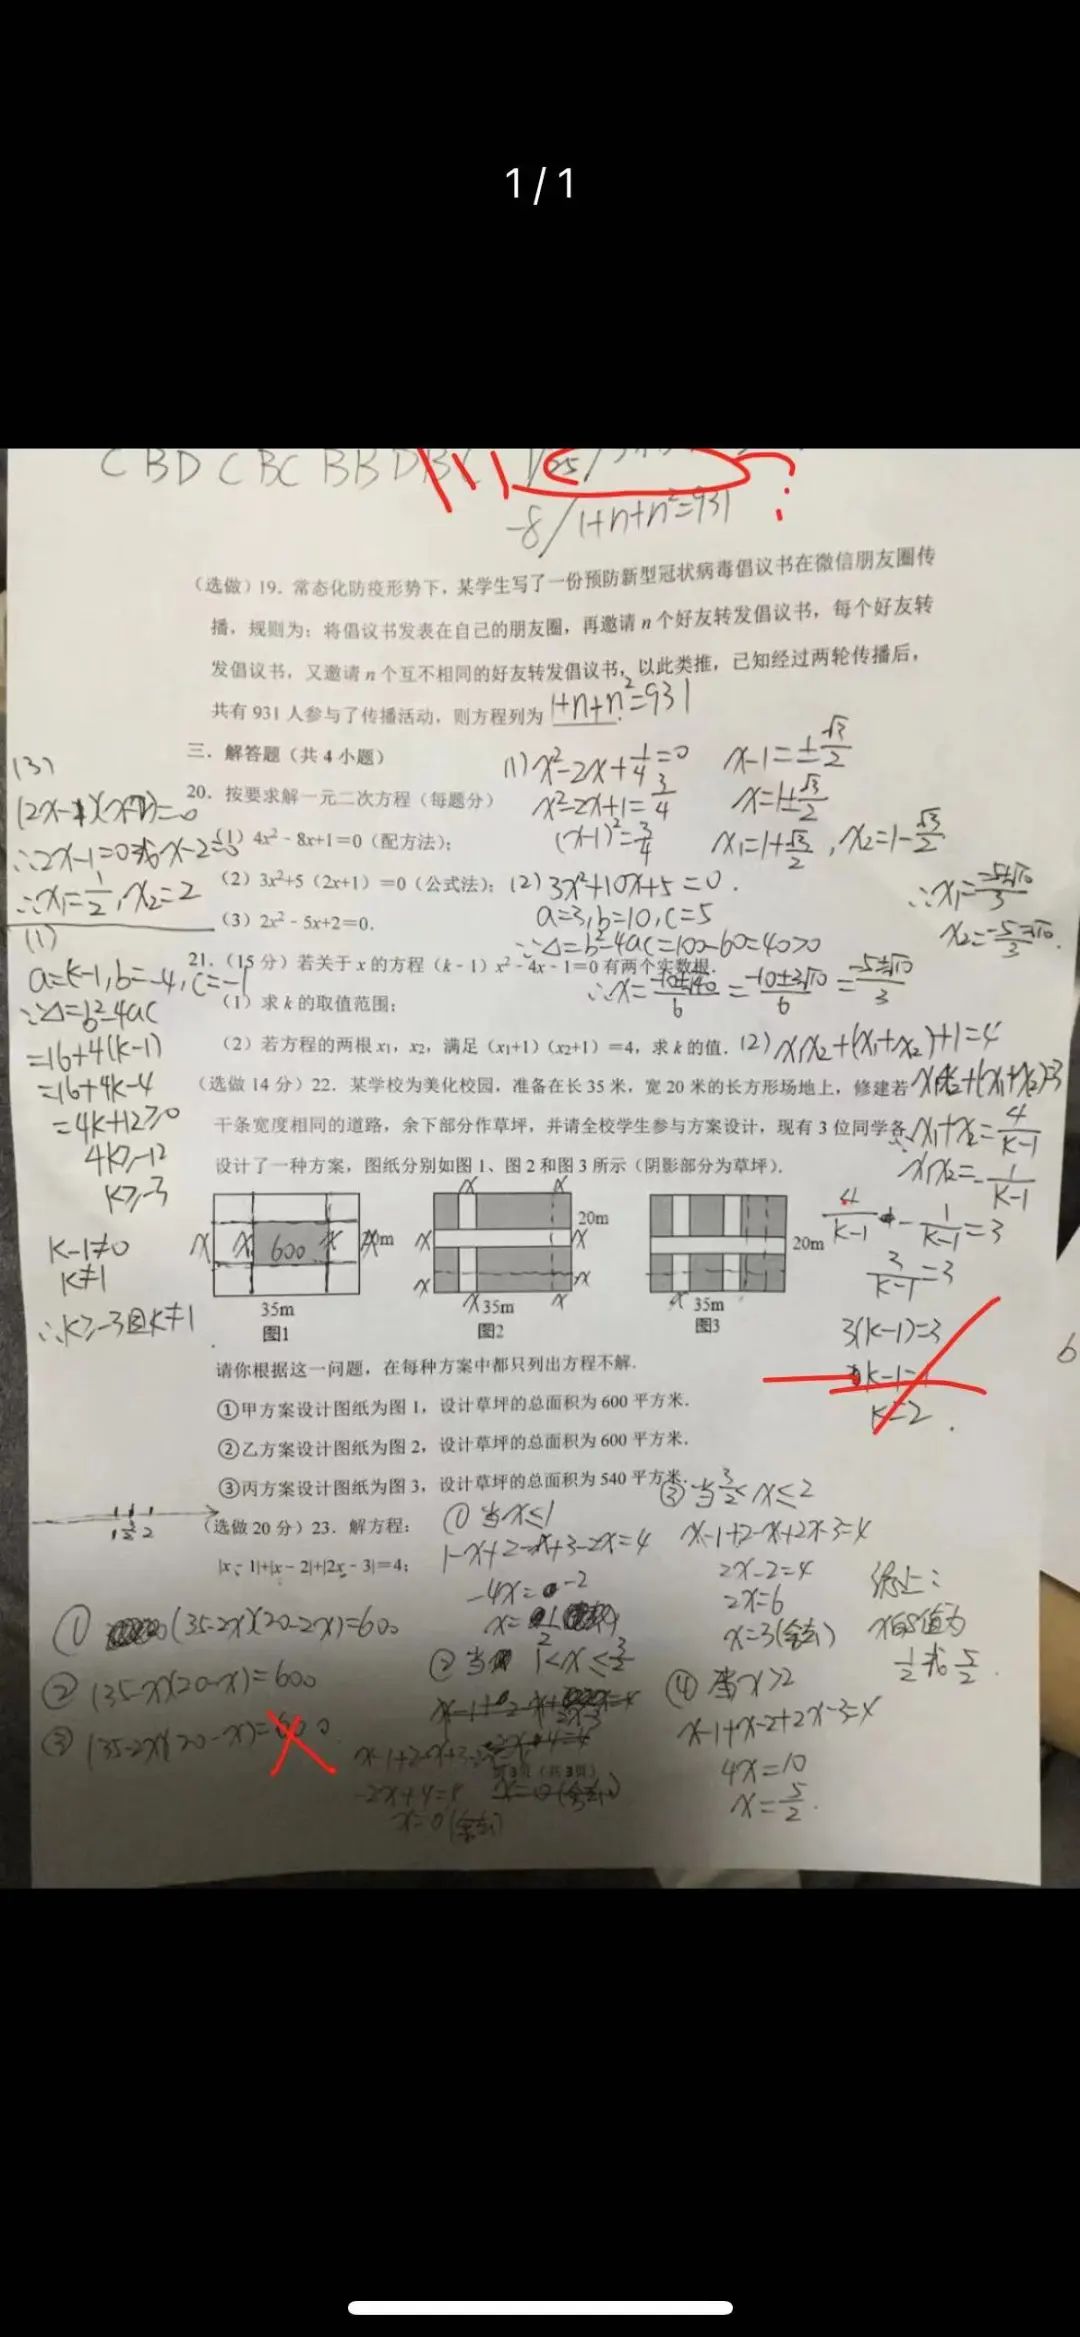 1/1
C BD C BC BB DBC
25
-8/1+n+n²=931
?
(选做)19. 常态化防疫形势下,某学生写了一份预防新型冠状病毒倡议书在微信朋友圈传
播,规则为:将倡议书发表在自己的朋友圈,再邀请 n 个好友转发倡议书,每个好友转
发倡议书,又邀请 n 个互不相同的好友转发倡议书,以此类推,己知经过两轮传播后,
共有 931 人参与了传播活动,则方程列为 1+n+n²=931.
三. 解答题(共 4 小题)
20. 按要求解一元二次方程(每题分)
(1) 4x² - 8x+1=0(配方法);
(2) 3x²+5(2x+1)=0(公式法);
(3) 2x² - 5x+2=0.
(1) x²-2x+1/4=0
x²-2x+1=3/4
(x-1)²=3/4
x-1=±√3/2
x=1±√3/2
x₁=1+√3/2, x₂=1-√3/2
(2) 3x²+10x+5=0.
a=3, b=10, c=5
∵△=b²-4ac=100-60=40>0
∴x=(-10±√40)/6=(-10±2√10)/6=(-5±√10)/3
(3)
∴2x-1=0或x-2=0
∴x₁=1/2, x₂=2
21. (15 分)若关于 x 的方程(k - 1)x² - 4x - 1=0 有两个实数根.
(1)求 k 的取值范围;
(2)若方程的两根 x₁, x₂, 满足(x₁+1)(x₂+1)=4,求 k 的值.
(1)
a=k-1, b=-4, c=-1
∵△=b²-4ac
=16+4(k-1)
=16+4k-4
=4k+12≥0
4k≥-12
k≥-3
k-1≠0
k≠1
∴k≥-3且k≠1
(2) x₁x₂+(x₁+x₂)+1=4
x₁x₂+(x₁+x₂)=3
x₁+x₂=4/(k-1)
x₁x₂=-1/(k-1)
4/(k-1) - 1/(k-1)=3
3/(k-1)=3
3(k-1)=3
k-1=1
k=2.
(选做 14 分)22. 某学校为美化校园,准备在长 35 米,宽 20 米的长方形场地上,修建若
干条宽度相同的道路,余下部分作草坪,并请全校学生参与方案设计,现有 3 位同学各
设计了一种方案,图纸分别如图 1、图 2 和图 3 所示(阴影部分为草坪).
x x 600 x 20m
35m
图1
x x x x x x
20m
35m
图2
x
20m
35m
图3
请你根据这一问题,在每种方案中都只列出方程不解.
①甲方案设计图纸为图 1,设计草坪的总面积为 600 平方米.
②乙方案设计图纸为图 2,设计草坪的总面积为 600 平方米.
③丙方案设计图纸为图 3,设计草坪的总面积为 540 平方米.
① (35-2x)(20-2x)=600
② (35-x)(20-x)=600
③ (35-2x)(20-x)=600
(选做 20 分)23. 解方程:
|x - 1|+|x - 2|+|2x - 3|=4;
1 3/2 2
① 当x≤1
1-x+2-x+3-2x=4
-4x=-2
x=1/2
② 当1<x≤3/2
x-1+2-x+3-2x=4
-2x+4=4
x=0(舍去)
③ 当3/2<x≤2
x-1+2-x+2x-3=4
2x-2=4
2x=6
x=3(舍去)
④ 当x>2
x-1+x-2+2x-3=4
4x=10
x=5/2.
综上:
x的值为
1/2或5/2.
第3页(共3页)
6